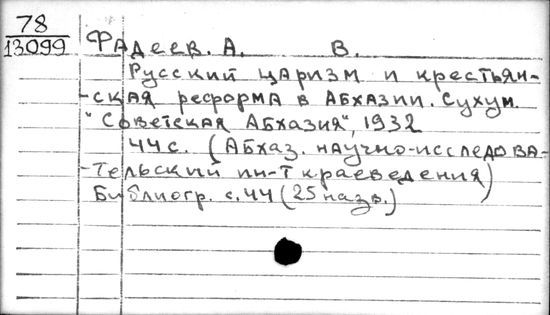 78
13099
Фадеев. А. В.
Русский царизм и крестьян-
-ская реформа в Абхазии. Сухум.
"Советская Абхазия", 1932
44 с. (Абхаз. научно-исследова-
-тельский ин-т краеведения)
Библиогр. с. 44 (25 назв.)